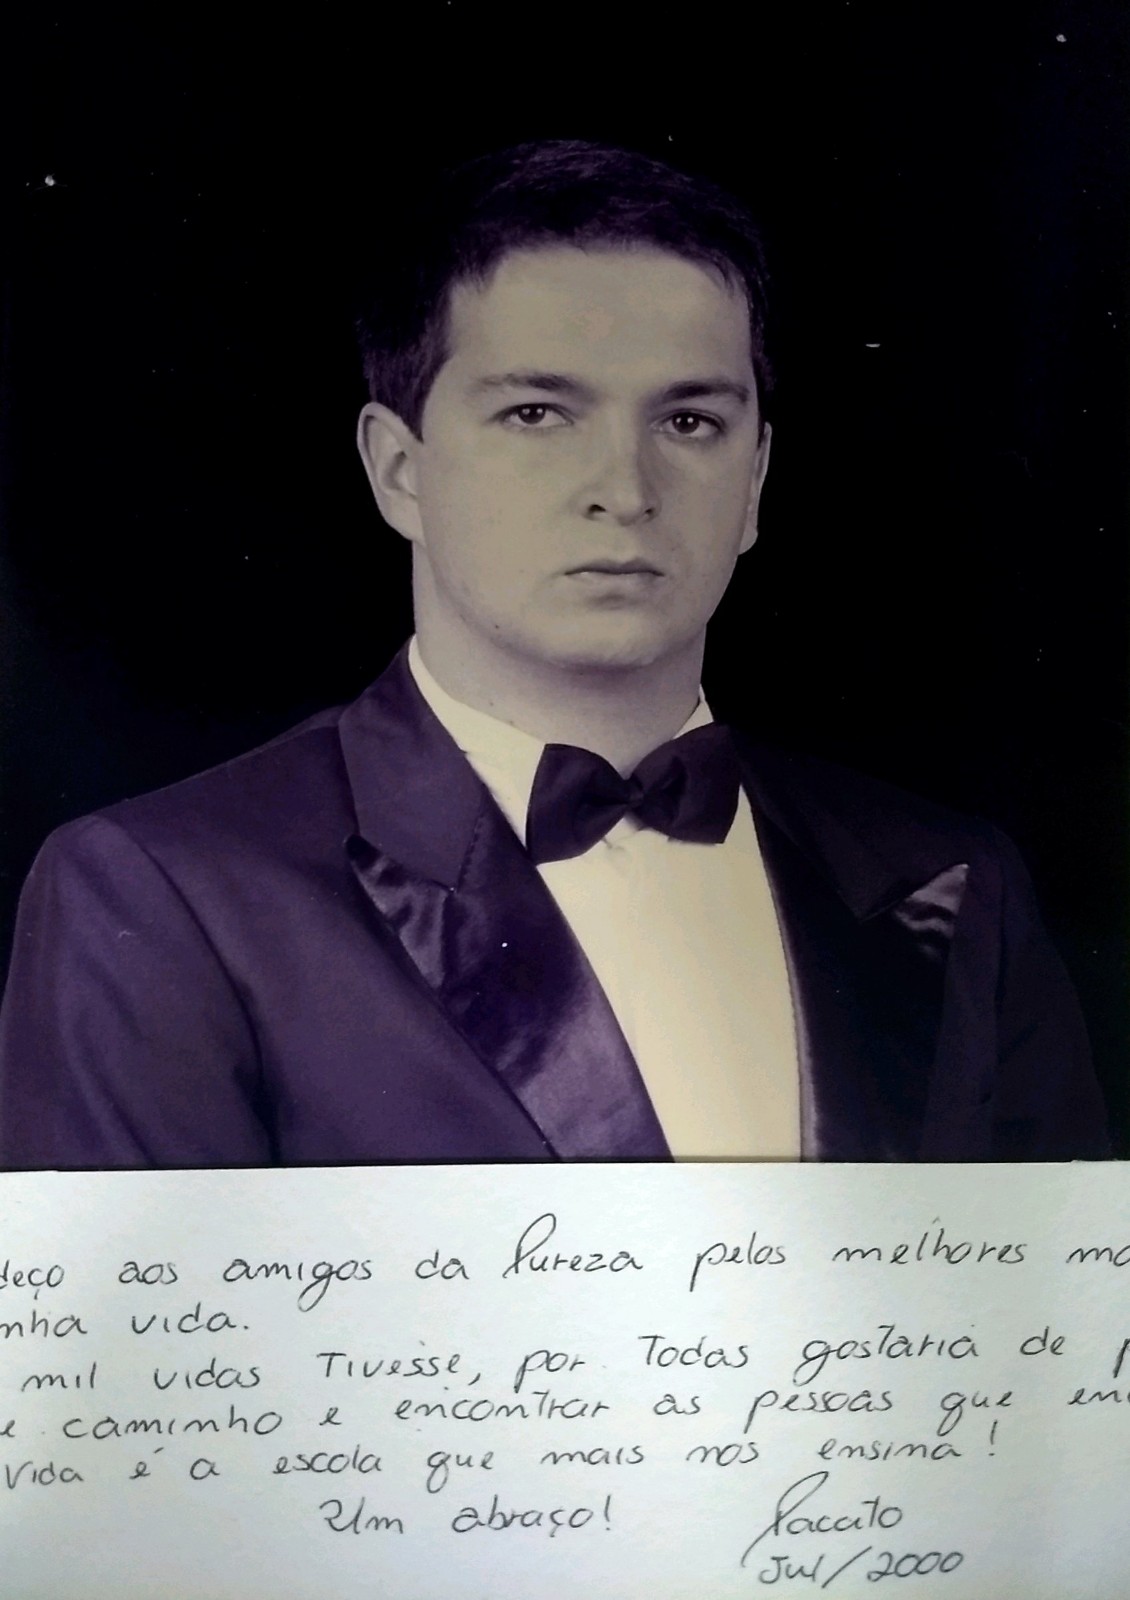 deço aos amigos da Pureza pelos melhores mo
nha vida.
mil vidas Tivesse, por Todas gostaria de p
e caminho e encontrar as pessoas que en
Vida é a escola que mais nos ensina!
Um abraço! Pacato
Jul/2000